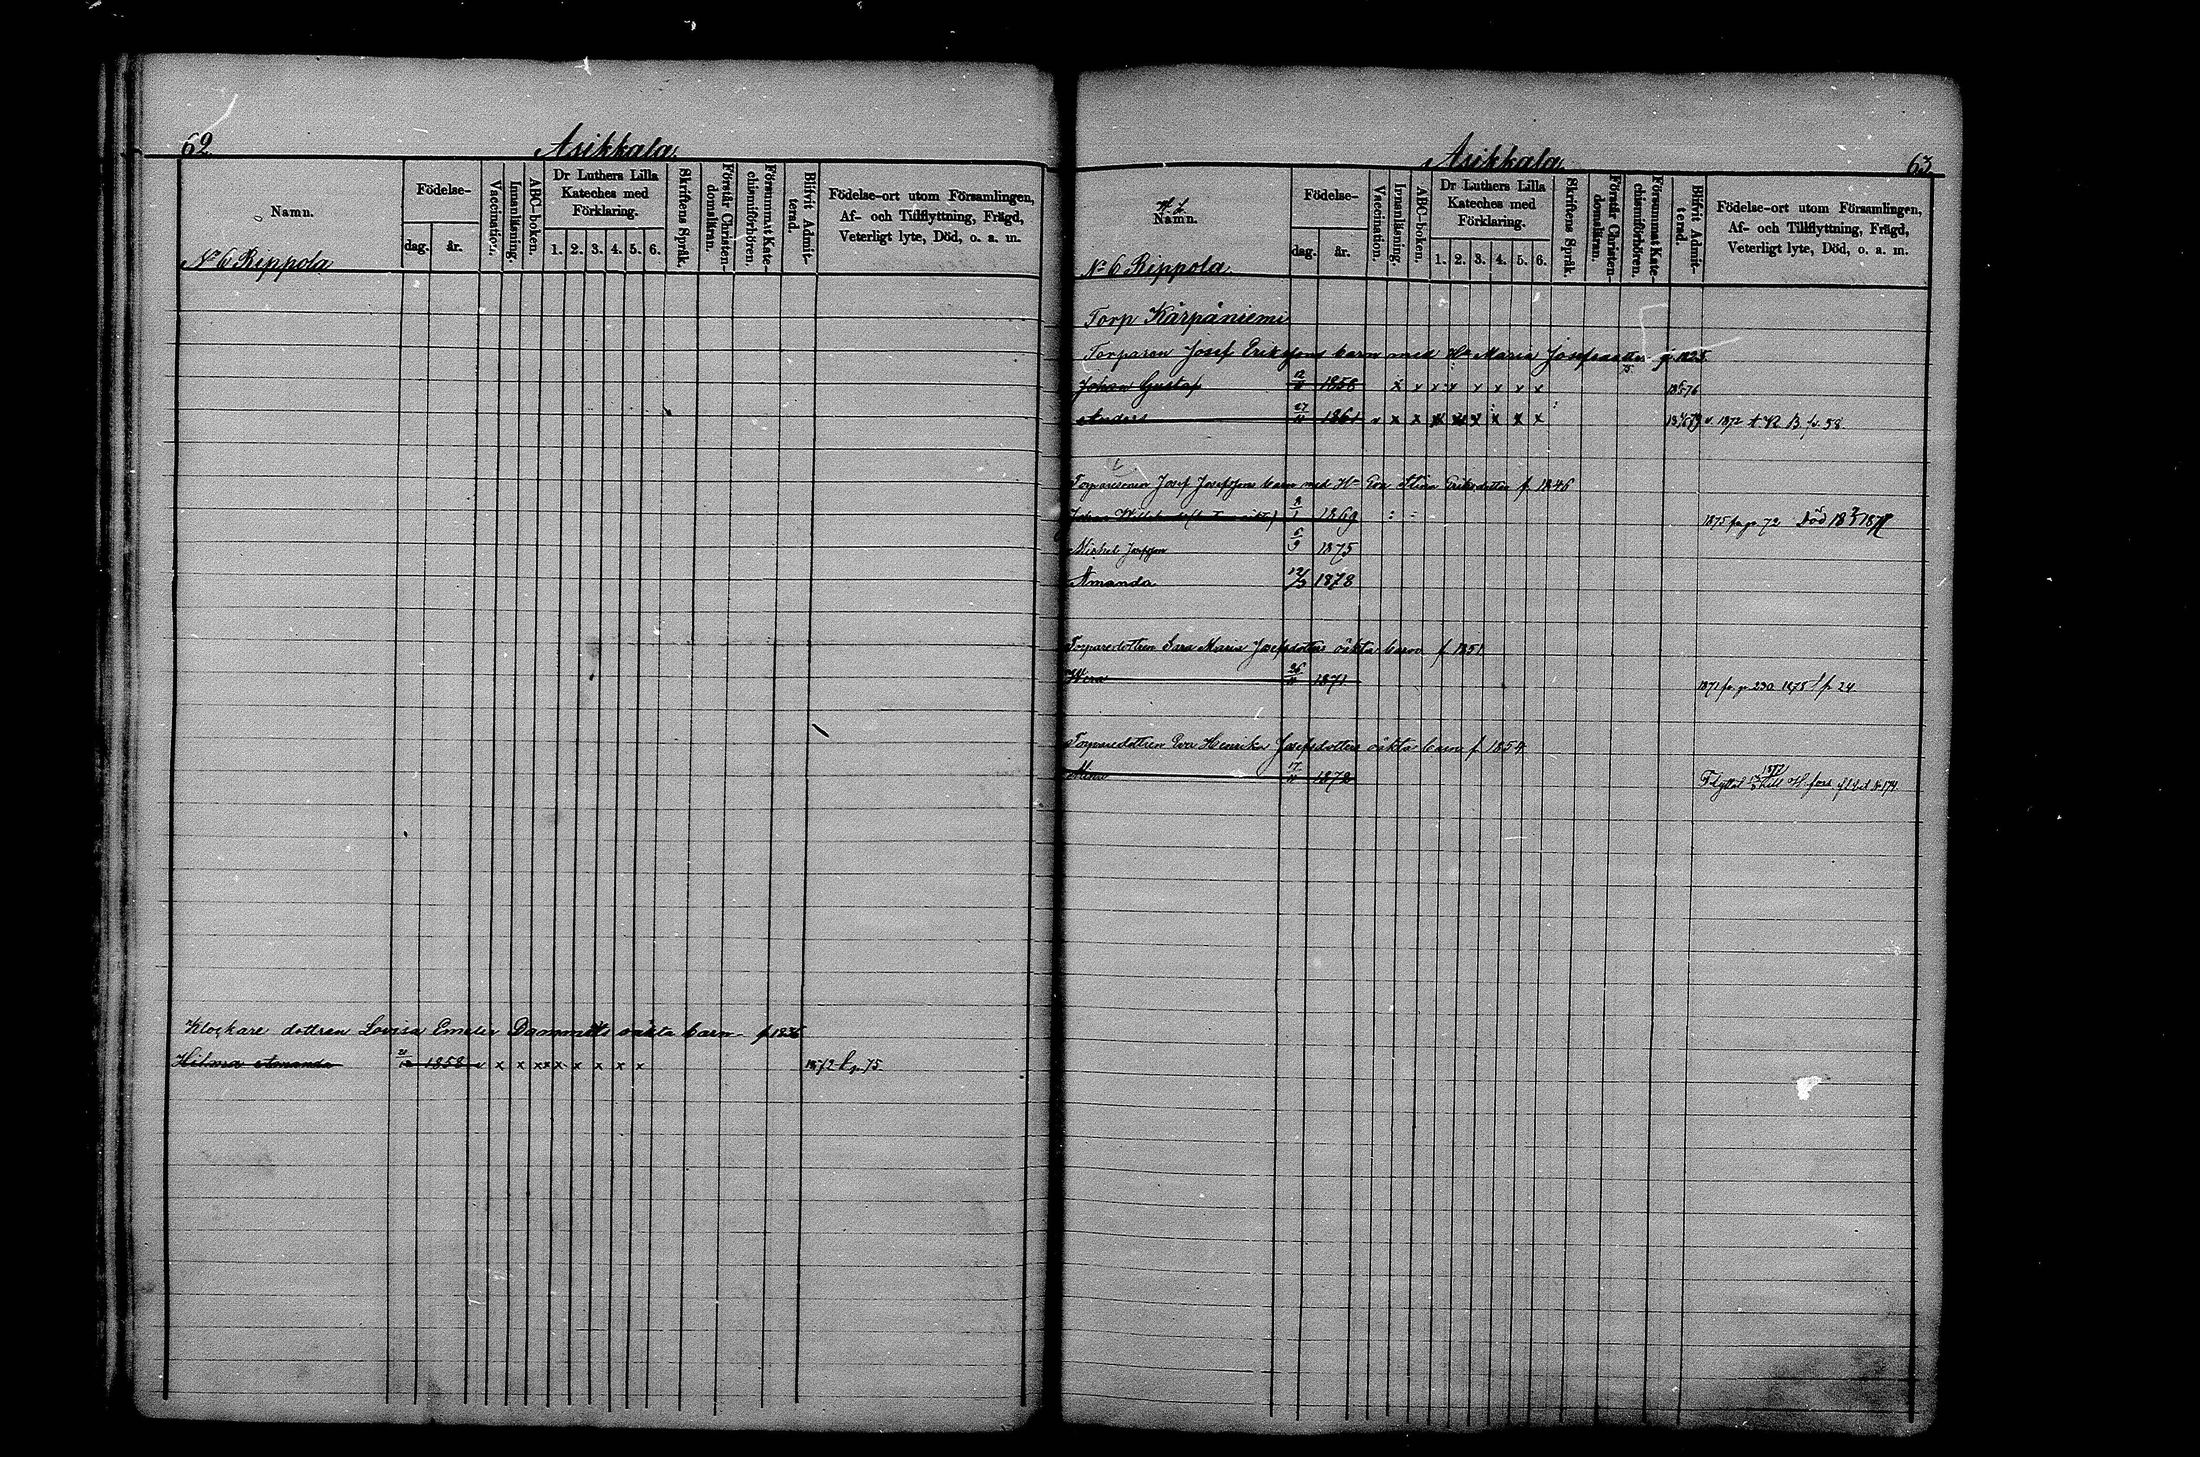 62
Asikkala.
Namn.
Födelse-
dag.
år.
Vaccination.
Innanläsning.
ABC-boken.
Dr Luthers Lilla Kateches med Förklaring.
1. 2. 3. 4. 5. 6.
Skriftens Språk.
Förstår Christendomsläran.
Försummat Katechismiförhören.
Blifvit Admitterad.
Födelse-ort utom Församlingen,
Af- och Tillflyttning, Frägd,
Veterligt lyte, Död, o. a. m.
No 6 Rippola
Klockare dottren Lovisa oäkta barn f. 1836
Hilma Amanda 21/12 1858 v x x x x x x x x x 1872 p. 75
Asikkala.
63.
Namn.
Födelse-
dag.
år.
Vaccination.
Innanläsning.
ABC-boken.
Dr Luthers Lilla Kateches med Förklaring.
1. 2. 3. 4. 5. 6.
Skriftens Språk
Förstår Christendomsläran.
Försummat Katechismiförhören.
Blifvit Admitterad.
Födelse-ort utom Församlingen,
Af- och Tillflyttning, Frägd,
Veterligt lyte, Död, o. a. m.
No 6 Rippola.
Torp Kärpäniemi
Torparen Josef Erikssons barn med Hu Maria Josefsdotter f. 1825
Johan Gustaf 12/11 1858 x x x x x x x x
Anders 27/11 1861 v x x x x x x x x 1872 p. 58
Torparesonen Josef Josefssons barn med Hu Eva Stina Eriksdotter f. 1846
Johan 8/1 1869 1875 fr p. 72 Död
Michel Josefsson 6/9 1875
Amanda 12/3 1878
Torparedottren Sara Maria Josefsdotters oäkta barn f. 1851
Wera 26/11 1871 1871 fr. p. 230 1878 t p 24
Torparedottren Eva Henrika Josefsdotters oäkta barn f. 1854
17/11 1872 Flyttat till H:fors